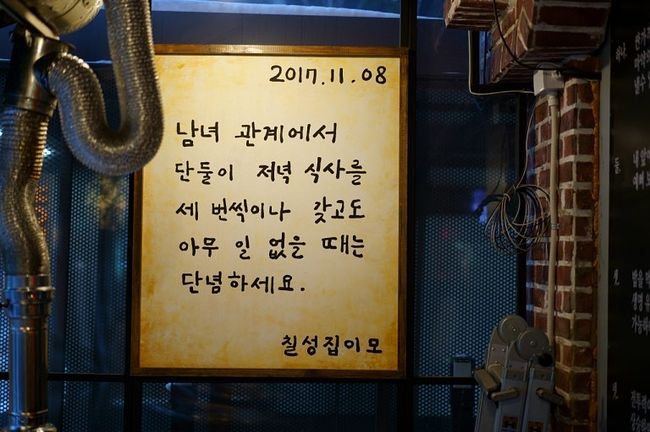 2017.11.08
남녀 관계에서
단둘이 저녁 식사를
세 번씩이나 갖고도
아무 일 없을 때는
단념하세요.
칠성집이모